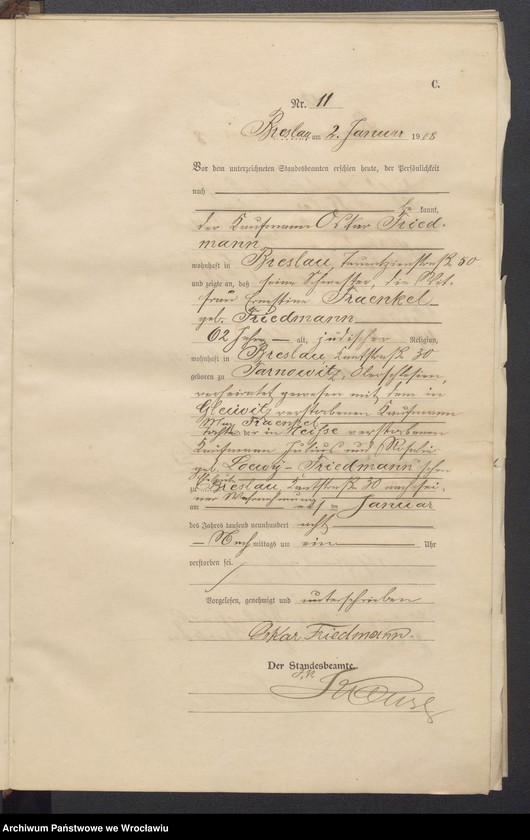 C.
Nr. 11
Breslau am 2. Januar 1908
Vor dem unterzeichneten Standesbeamten erschien heute, der Persönlichkeit
nach
be kannt,
der Kaufmann Oskar Fried-
mann
wohnhaft in Breslau, Tauentzienstraße 50
und zeigte an, daß seine Schwester, die
frau Ernstine Fraenkel
geb. Friedmann
62 Jahre alt, jüdischer Religion,
wohnhaft in Breslau Kantstraße 30
geboren zu Tarnowitz, Oberschlesien,
verheiratet gewesen mit dem in
Gleiwitz verstorbenen Kaufmann
Fraenkel
Tochter der in Neisse verstorbenen
Kaufmann Julius und
geb. Loewy - Friedmann'schen
zu Breslau, Kantstraße 30
am Januar
des Jahres tausend neunhundert acht
Nach mittags um ein Uhr
verstorben sei.
Vorgelesen, genehmigt und unterschrieben
Oskar Friedmann.
Der Standesbeamte.
Archiwum Państwowe we Wrocławiu